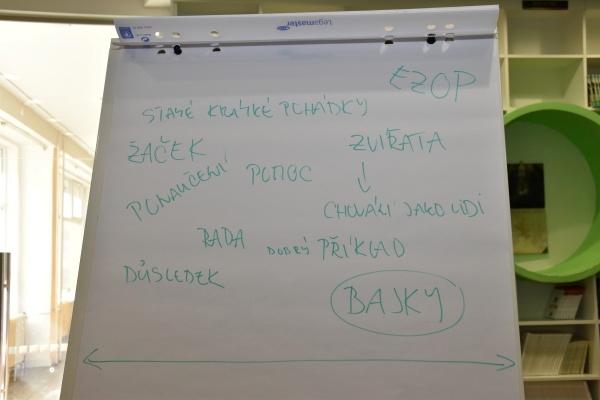 Legamaster
EZOP
STARÉ KRÁTKÉ POHÁDKY
ŽÁČEK
ZVÍŘATA
PONAUČENÍ
POMOC
↓
CHOVÁNÍ JAKO LIDI
RADA
DOBRÝ PŘÍKLAD
DŮSLEDEK
BAJKY